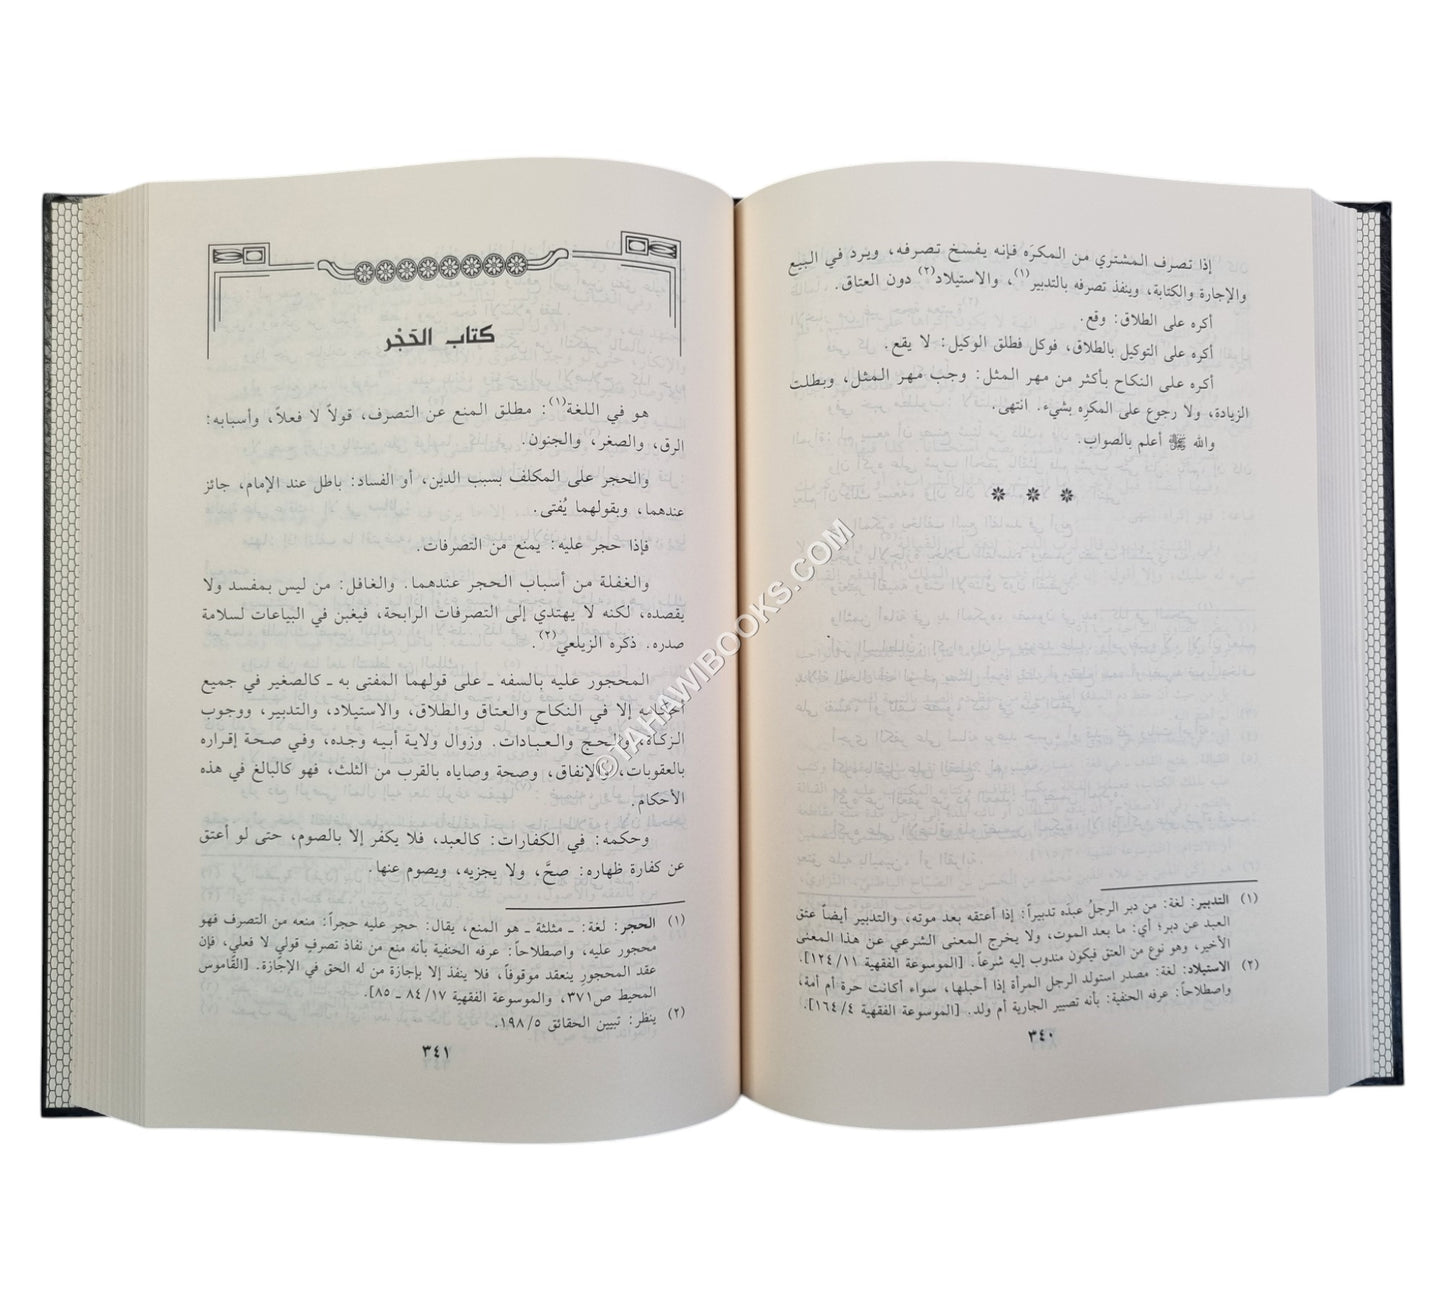 إذا تصرف المشتري من المكرَه فإنه يفسخ تصرفه، ويرد في البيع
والإجارة والكتابة، وينفذ تصرفه بالتدبير(١)، والاستيلاد(٢) دون العتاق.
أكره على الطلاق: وقع.
أكره على التوكيل بالطلاق، فوكل فطلق الوكيل: لا يقع.
أكره على النكاح بأكثر من مهر المثل: وجب مهر المثل، وبطلت
الزيادة، ولا رجوع على المكرِه بشيء. انتهى.
والله ﷻ أعلم بالصواب.
(١) التدبير: لغة: من دبر الرجلُ عبدَه تدبيراً: إذا أعتقه بعد موته، والتدبير أيضاً عتق
العبد عن دبر؛ أي: ما بعد الموت، ولا يخرج المعنى الشرعي عن هذا المعنى
الأخير، وهو نوع من العتق فيكون مندوب إليه شرعاً. [الموسوعة الفقهية ١١/ ١٢٤].
(٢) الاستيلاد: لغة: مصدر استولد الرجل المرأة إذا أحبلها، سواء أكانت حرة أم أمة،
واصطلاحاً: عرفه الحنفية: بأنه تصيير الجارية أم ولد. [الموسوعة الفقهية ٤/ ١٦٤].
٣٤٠
كتاب الحَجْر
هو في اللغة(١): مطلق المنع عن التصرف، قولاً لا فعلاً، وأسبابه:
الرق، والصغر، والجنون.
والحجر على المكلف بسبب الدين، أو الفساد: باطل عند الإمام، جائز
عندهما، وبقولهما يُفتى.
فإذا حجر عليه: يمنع من التصرفات.
والغفلة من أسباب الحجر عندهما. والغافل: من ليس بمفسد ولا
يقصده، لكنه لا يهتدي إلى التصرفات الرابحة، فيغبن في البياعات لسلامة
صدره. ذكره الزيلعي(٢).
المحجور عليه بالسفه ـ على قولهما المفتى به ـ كالصغير في جميع
أحكامه إلا في النكاح والعتاق والطلاق، والاستيلاد، والتدبير، ووجوب
الزكاة، والحج والعبادات. وزوال ولاية أبيه وجده، وفي صحة إقراره
بالعقوبات، والإنفاق، وصحة وصاياه بالقرب من الثلث، فهو كالبالغ في هذه
الأحكام.
وحكمه: في الكفارات: كالعبد، فلا يكفر إلا بالصوم، حتى لو أعتق
عن كفارة ظهاره: صحَّ، ولا يجزيه، ويصوم عنها.
(١) الحجر: لغة: ـ مثلثة ـ هو المنع، يقال: حجر عليه حجراً: منعه من التصرف فهو
محجور عليه، واصطلاحاً: عرفه الحنفية بأنه منع من نفاذ تصرفٍ قولي لا فعلي، فإن
عقد المحجور ينعقد موقوفاً، فلا ينفذ إلا بإجازة من له الحق في الإجازة. [القاموس
المحيط ص٣٧١، والموسوعة الفقهية ١٧/ ٨٤ ـ ٨٥].
(٢) ينظر: تبيين الحقائق ٥/ ١٩٨.
٣٤١
©TAHAWIBOOKS.COM